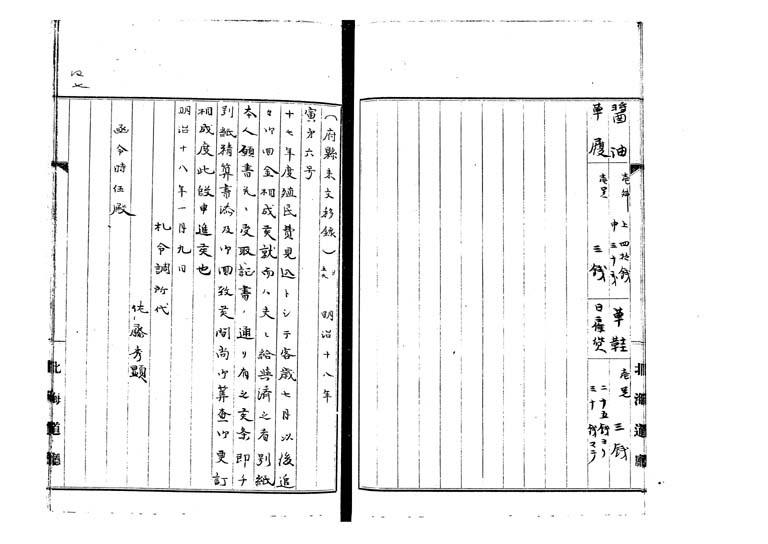 醬油 壱升 上 四拾銭
中 三十銭
草履 壱足 三銭
草鞋 壱足 三銭
日雇賃 二十五銭ヨリ
三十銭マテ
北海道廳
(府縣来文移録) 明治十八年
寅第六号
十七年度殖民費見込トシテ客歳七月以後追
々御回金相成候就而ハ夫々給与済之者別紙
本人願書幷ニ受取証書之通リ有之候条即チ
別紙精算書添及御回致候間尚御算査御更訂
相成度此段申進候也
明治十八年一月九日
札令調所代
佐藤秀顕
函令時任殿
北海道廳